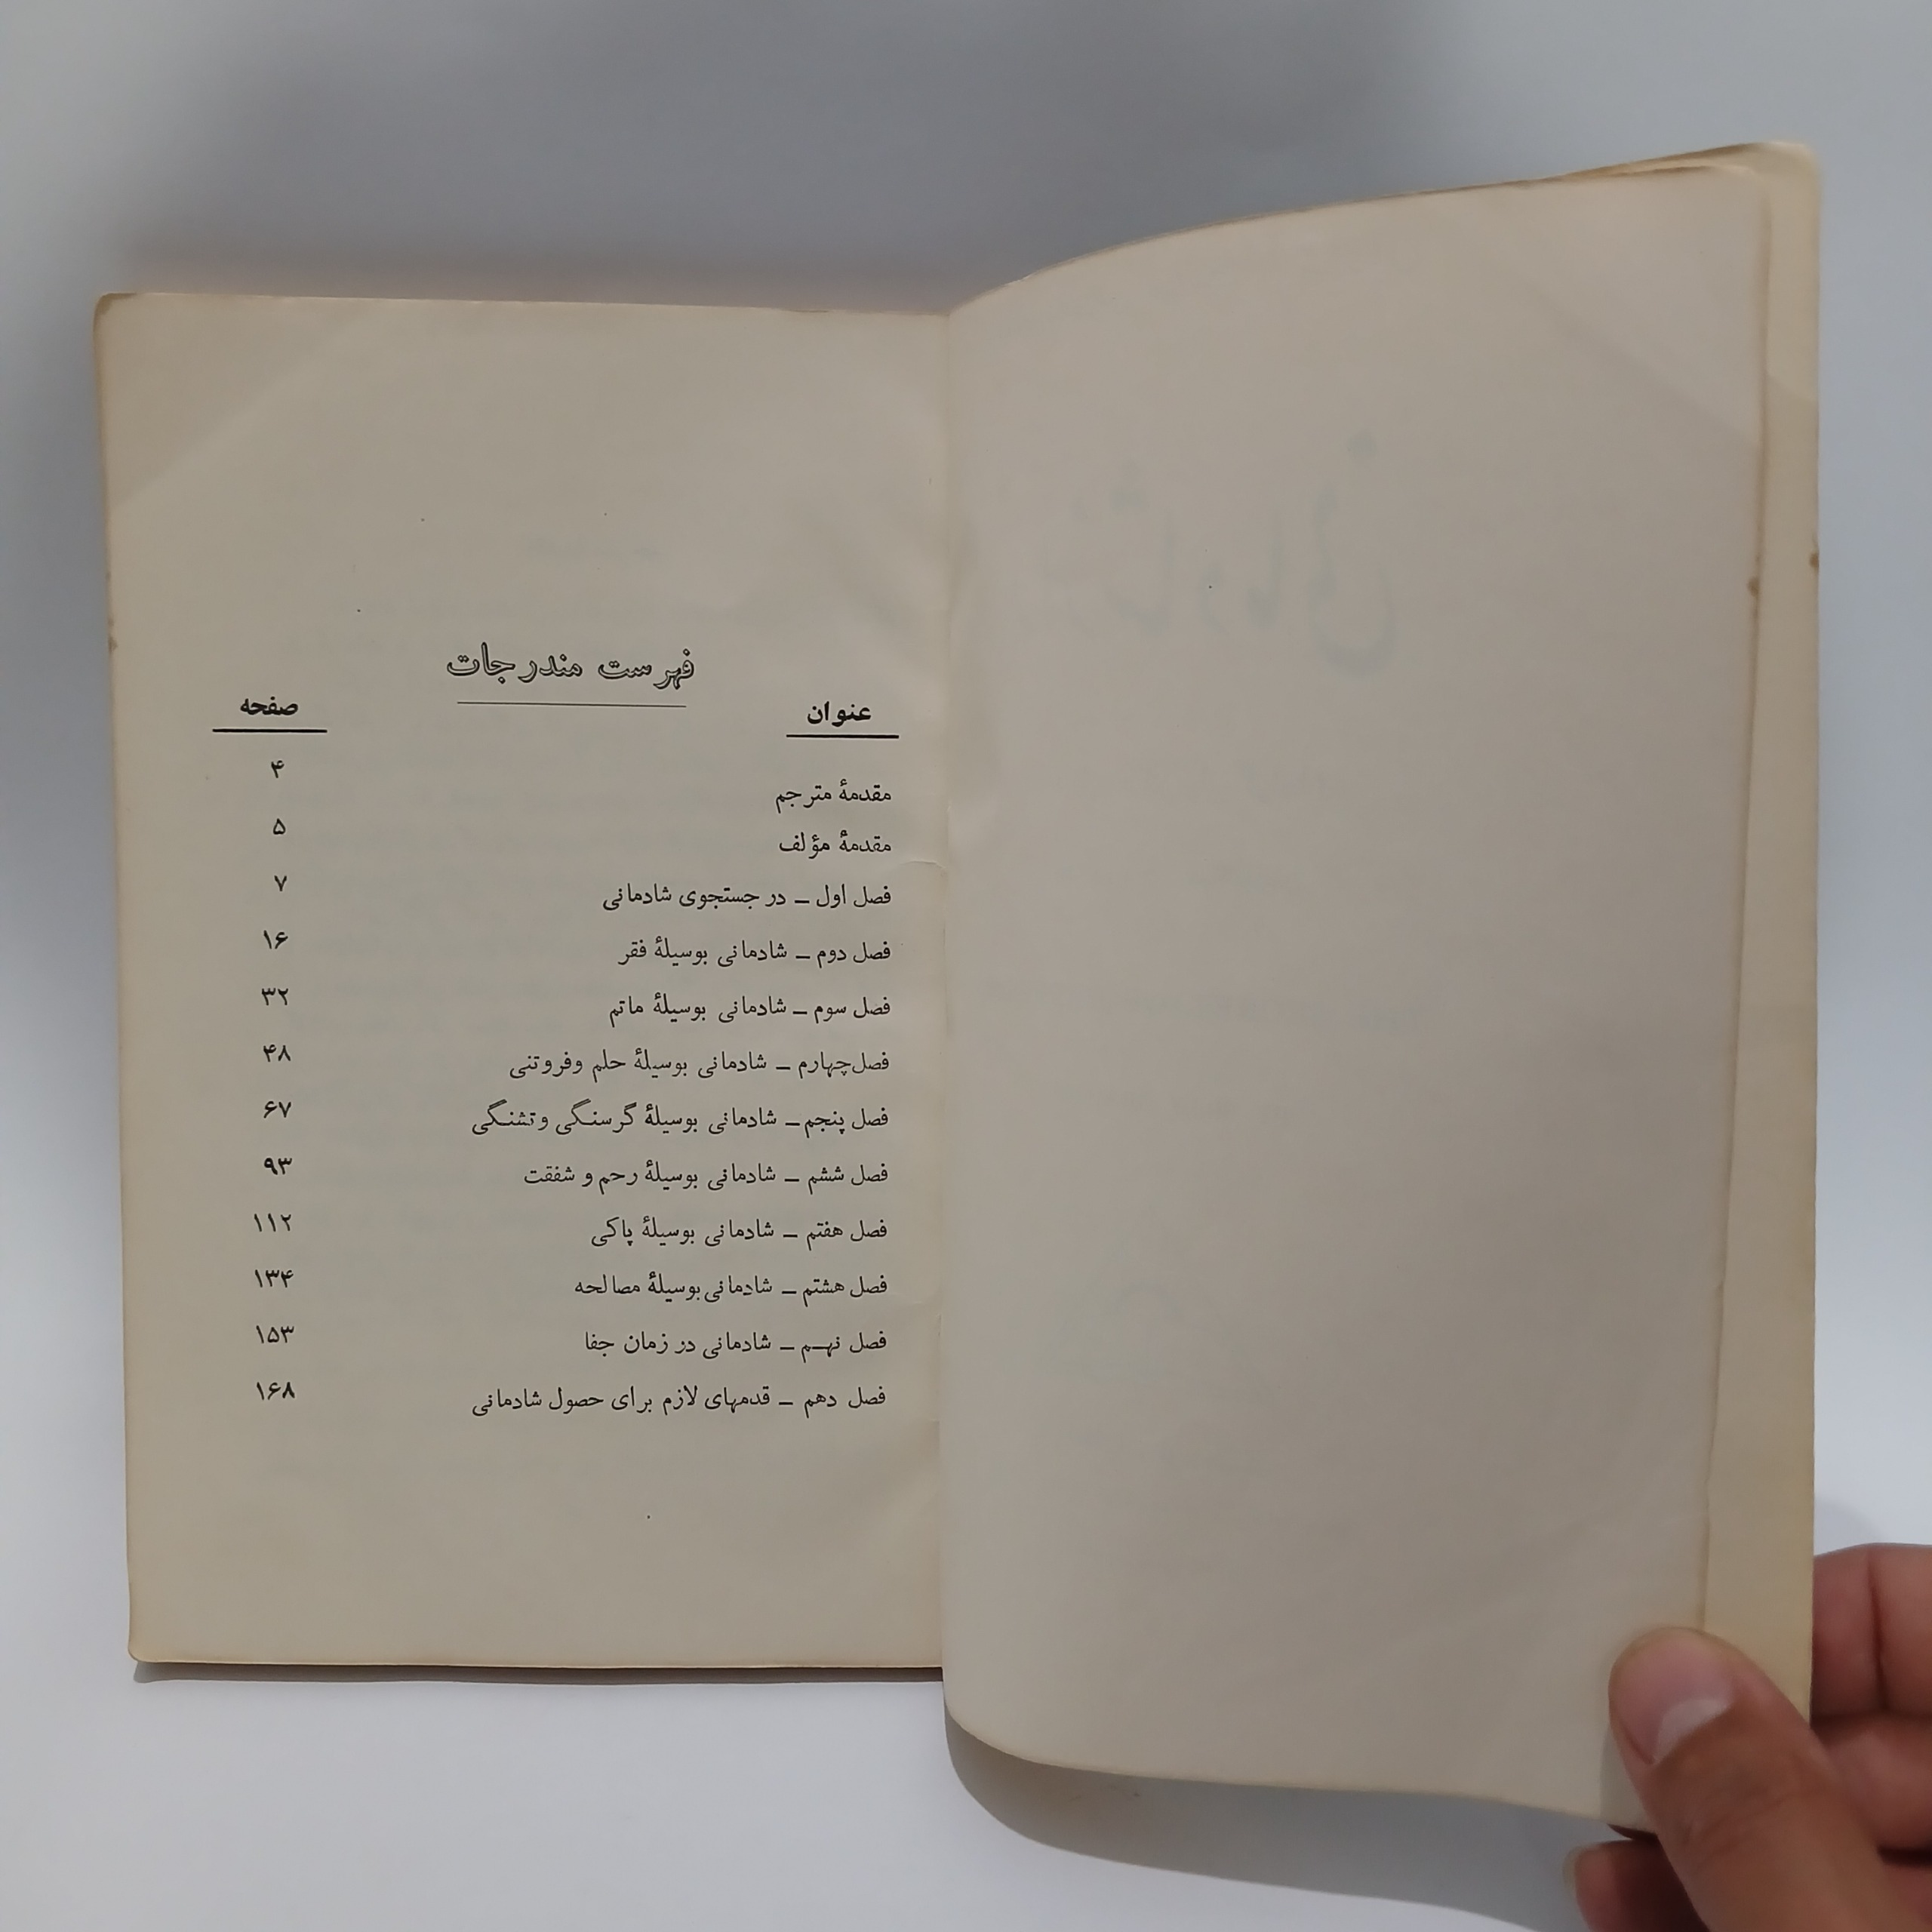 فهرست مندرجات
عنوان صفحه
مقدمهٔ مترجم ۴
مقدمهٔ مؤلف ۵
فصل اول ـ در جستجوی شادمانی ۷
فصل دوم ـ شادمانی بوسیلهٔ فقر ۱۶
فصل سوم ـ شادمانی بوسیلهٔ ماتم ۳۲
فصل چهارم ـ شادمانی بوسیلهٔ حلم وفروتنی ۴۸
فصل پنجم ـ شادمانی بوسیلهٔ گرسنگی وتشنگی ۶۷
فصل ششم ـ شادمانی بوسیلهٔ رحم و شفقت ۹۳
فصل هفتم ـ شادمانی بوسیلهٔ پاکی ۱۱۲
فصل هشتم ـ شادمانی بوسیلهٔ مصالحه ۱۳۴
فصل نهـم ـ شادمانی در زمان جفا ۱۵۳
فصل دهم ـ قدمهای لازم برای حصول شادمانی ۱۶۸